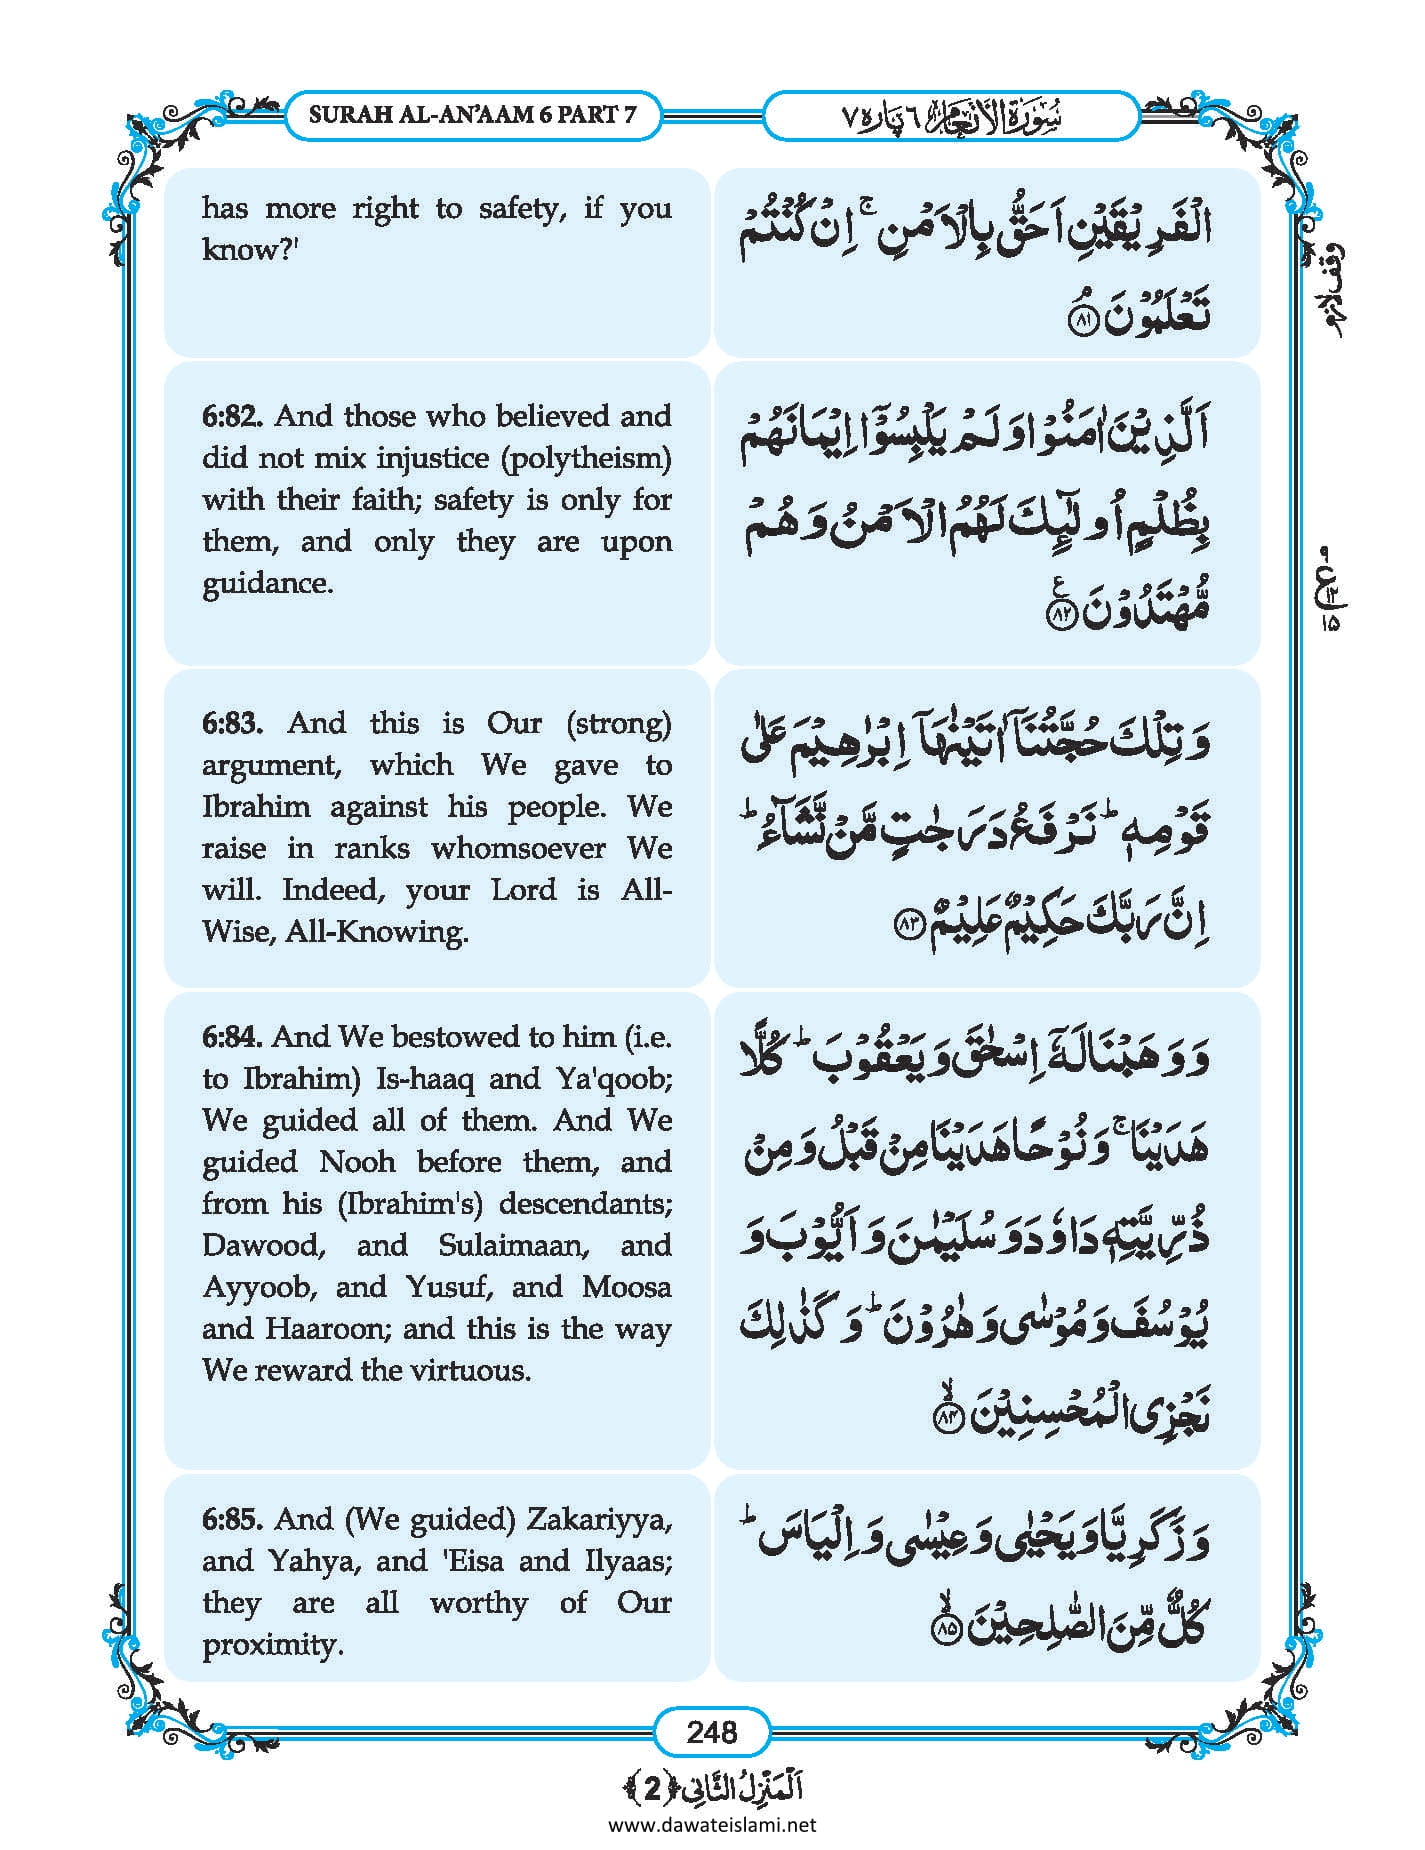 SURAH AL-AN'AAM 6 PART 7
سُوْرَةُ الْاَنْعَام ٦ پارہ ٧
has more right to safety, if you
know?'
الْفَرِیْقَیْنِ اَحَقُّ بِالْاَمْنِ ۚ اِنْ كُنْتُمْ
تَعْلَمُوْنَ ۘ﴿۸۱﴾
وقف لازم
6:82. And those who believed and
did not mix injustice (polytheism)
with their faith; safety is only for
them, and only they are upon
guidance.
اَلَّذِیْنَ اٰمَنُوْا وَ لَمْ یَلْبِسُوْۤا اِیْمَانَهُمْ
بِظُلْمٍ اُولٰٓىِٕكَ لَهُمُ الْاَمْنُ وَ هُمْ
مُّهْتَدُوْنَ ﴿۸۲﴾ ع
۹
ع ۱۲
۱۵
6:83. And this is Our (strong)
argument, which We gave to
Ibrahim against his people. We
raise in ranks whomsoever We
will. Indeed, your Lord is All-
Wise, All-Knowing.
وَ تِلْكَ حُجَّتُنَاۤ اٰتَیْنٰهَاۤ اِبْرٰهِیْمَ عَلٰى
قَوْمِهٖ ؕ نَرْفَعُ دَرَجٰتٍ مَّنْ نَّشَآءُ ؕ
اِنَّ رَبَّكَ حَكِیْمٌ عَلِیْمٌ ﴿۸۳﴾
6:84. And We bestowed to him (i.e.
to Ibrahim) Is-haaq and Ya'qoob;
We guided all of them. And We
guided Nooh before them, and
from his (Ibrahim's) descendants;
Dawood, and Sulaimaan, and
Ayyoob, and Yusuf, and Moosa
and Haaroon; and this is the way
We reward the virtuous.
وَ وَهَبْنَا لَهٗۤ اِسْحٰقَ وَ یَعْقُوْبَ ؕ كُلًّا
هَدَیْنَا ۚ وَ نُوْحًا هَدَیْنَا مِنْ قَبْلُ وَ مِنْ
ذُرِّیَّتِهٖ دَاوٗدَ وَ سُلَیْمٰنَ وَ اَیُّوْبَ وَ
یُوْسُفَ وَ مُوْسٰى وَ هٰرُوْنَ ؕ وَ كَذٰلِكَ
نَجْزِی الْمُحْسِنِیْنَ ۙ﴿۸۴﴾
6:85. And (We guided) Zakariyya,
and Yahya, and 'Eisa and Ilyaas;
they are all worthy of Our
proximity.
وَ زَكَرِیَّا وَ یَحْیٰى وَ عِیْسٰى وَ اِلْیَاسَ ؕ
كُلٌّ مِّنَ الصّٰلِحِیْنَ ۙ﴿۸۵﴾
248
اَلْمَنْزِلُ الثَّانِی ﴿2﴾
www.dawateislami.net